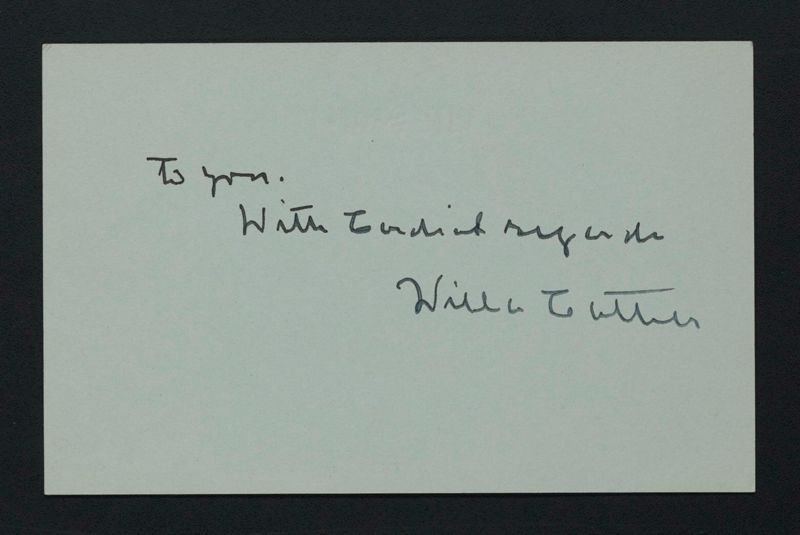 To you.
With Cordial regards
Willa Cather